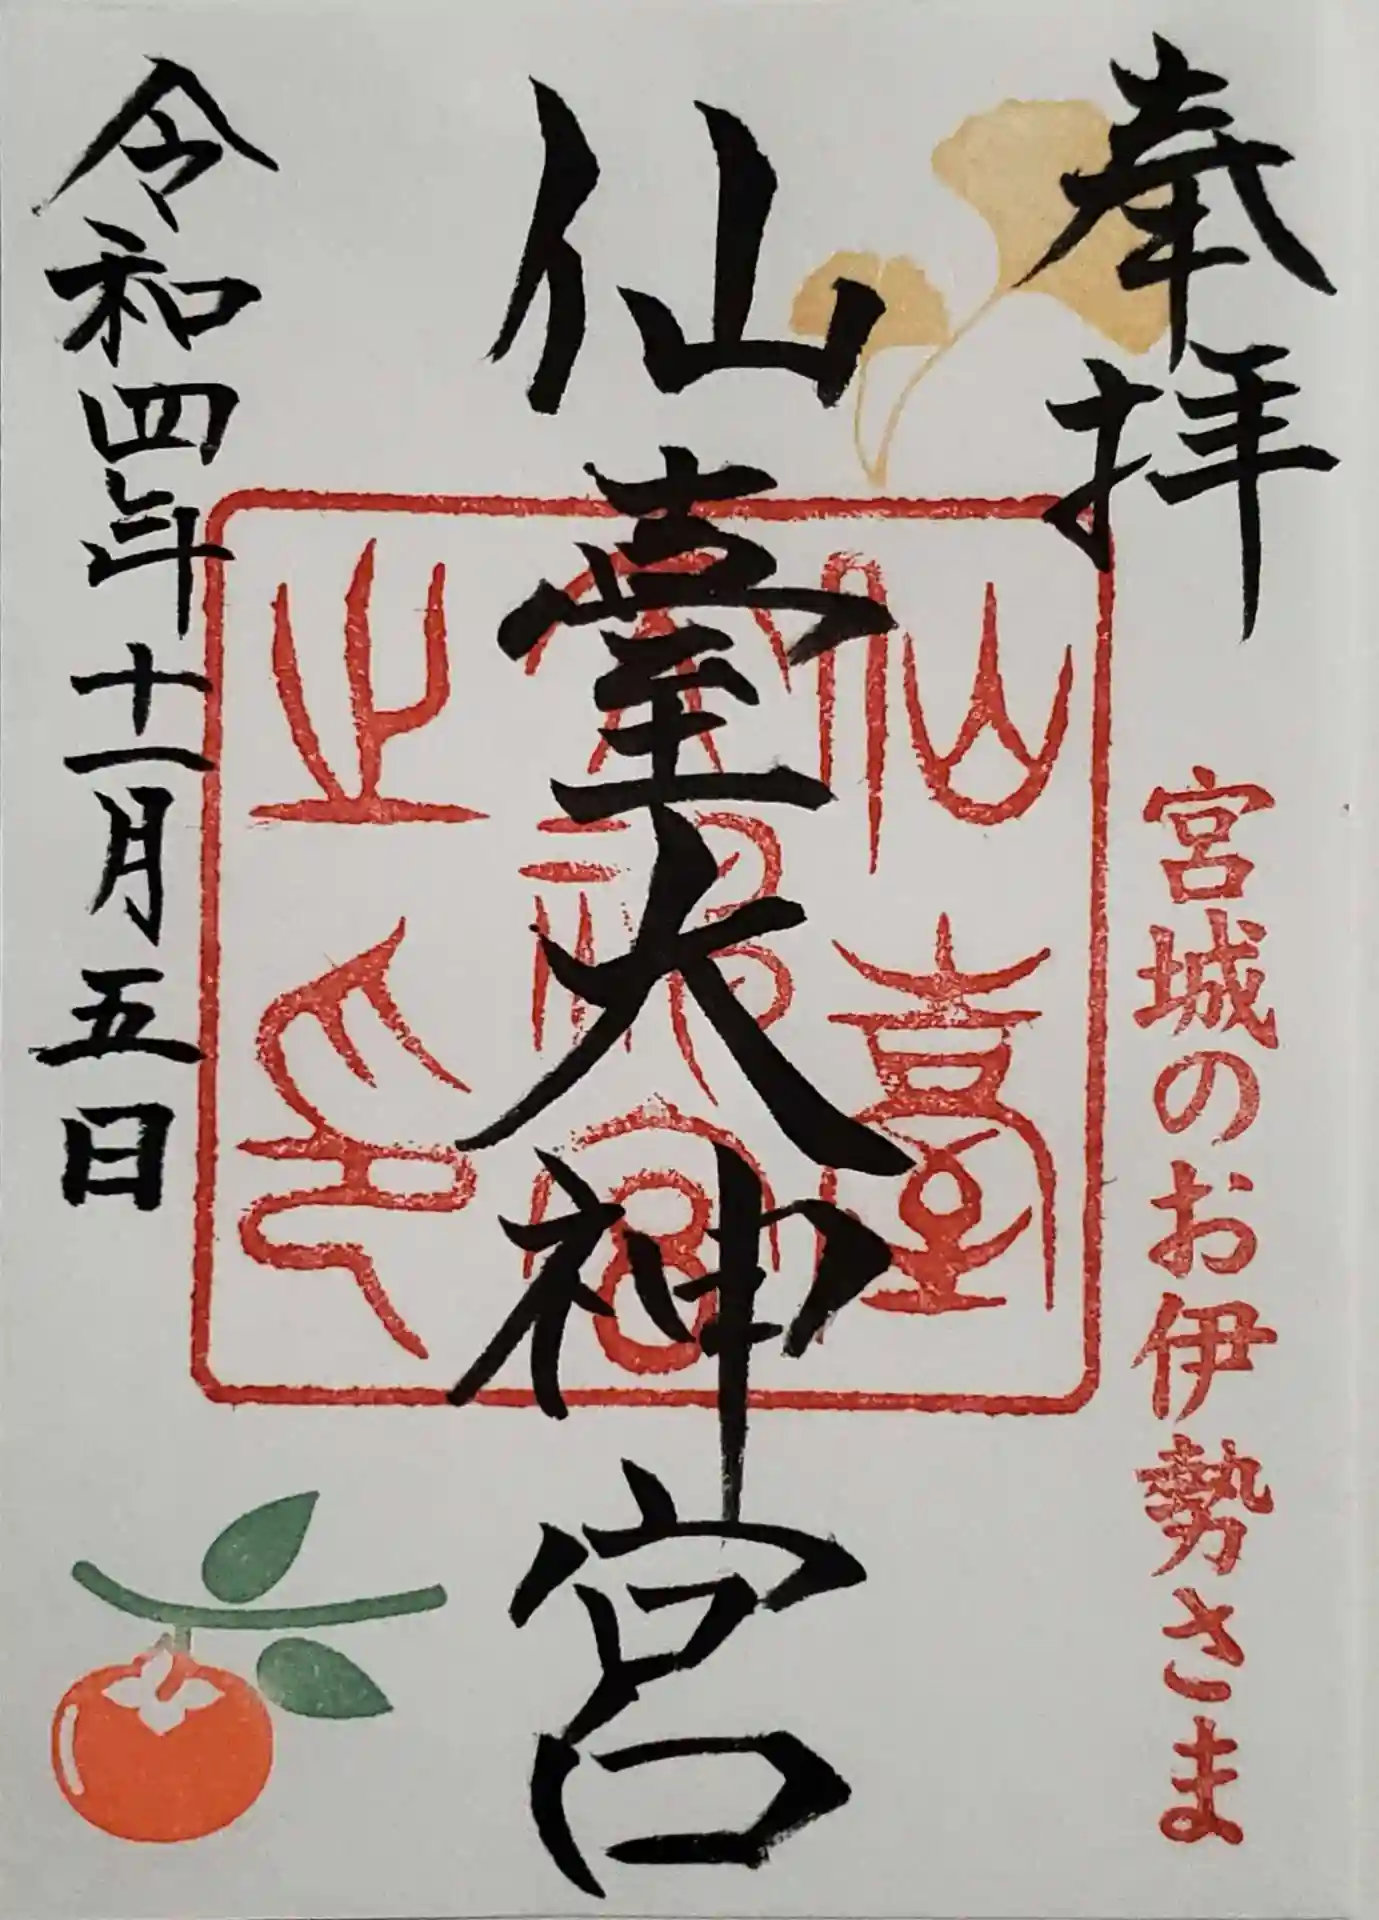 奉拝
宮城のお伊勢さま
仙臺大神宮
仙臺
大神宮
之印
令和四年十一月五日